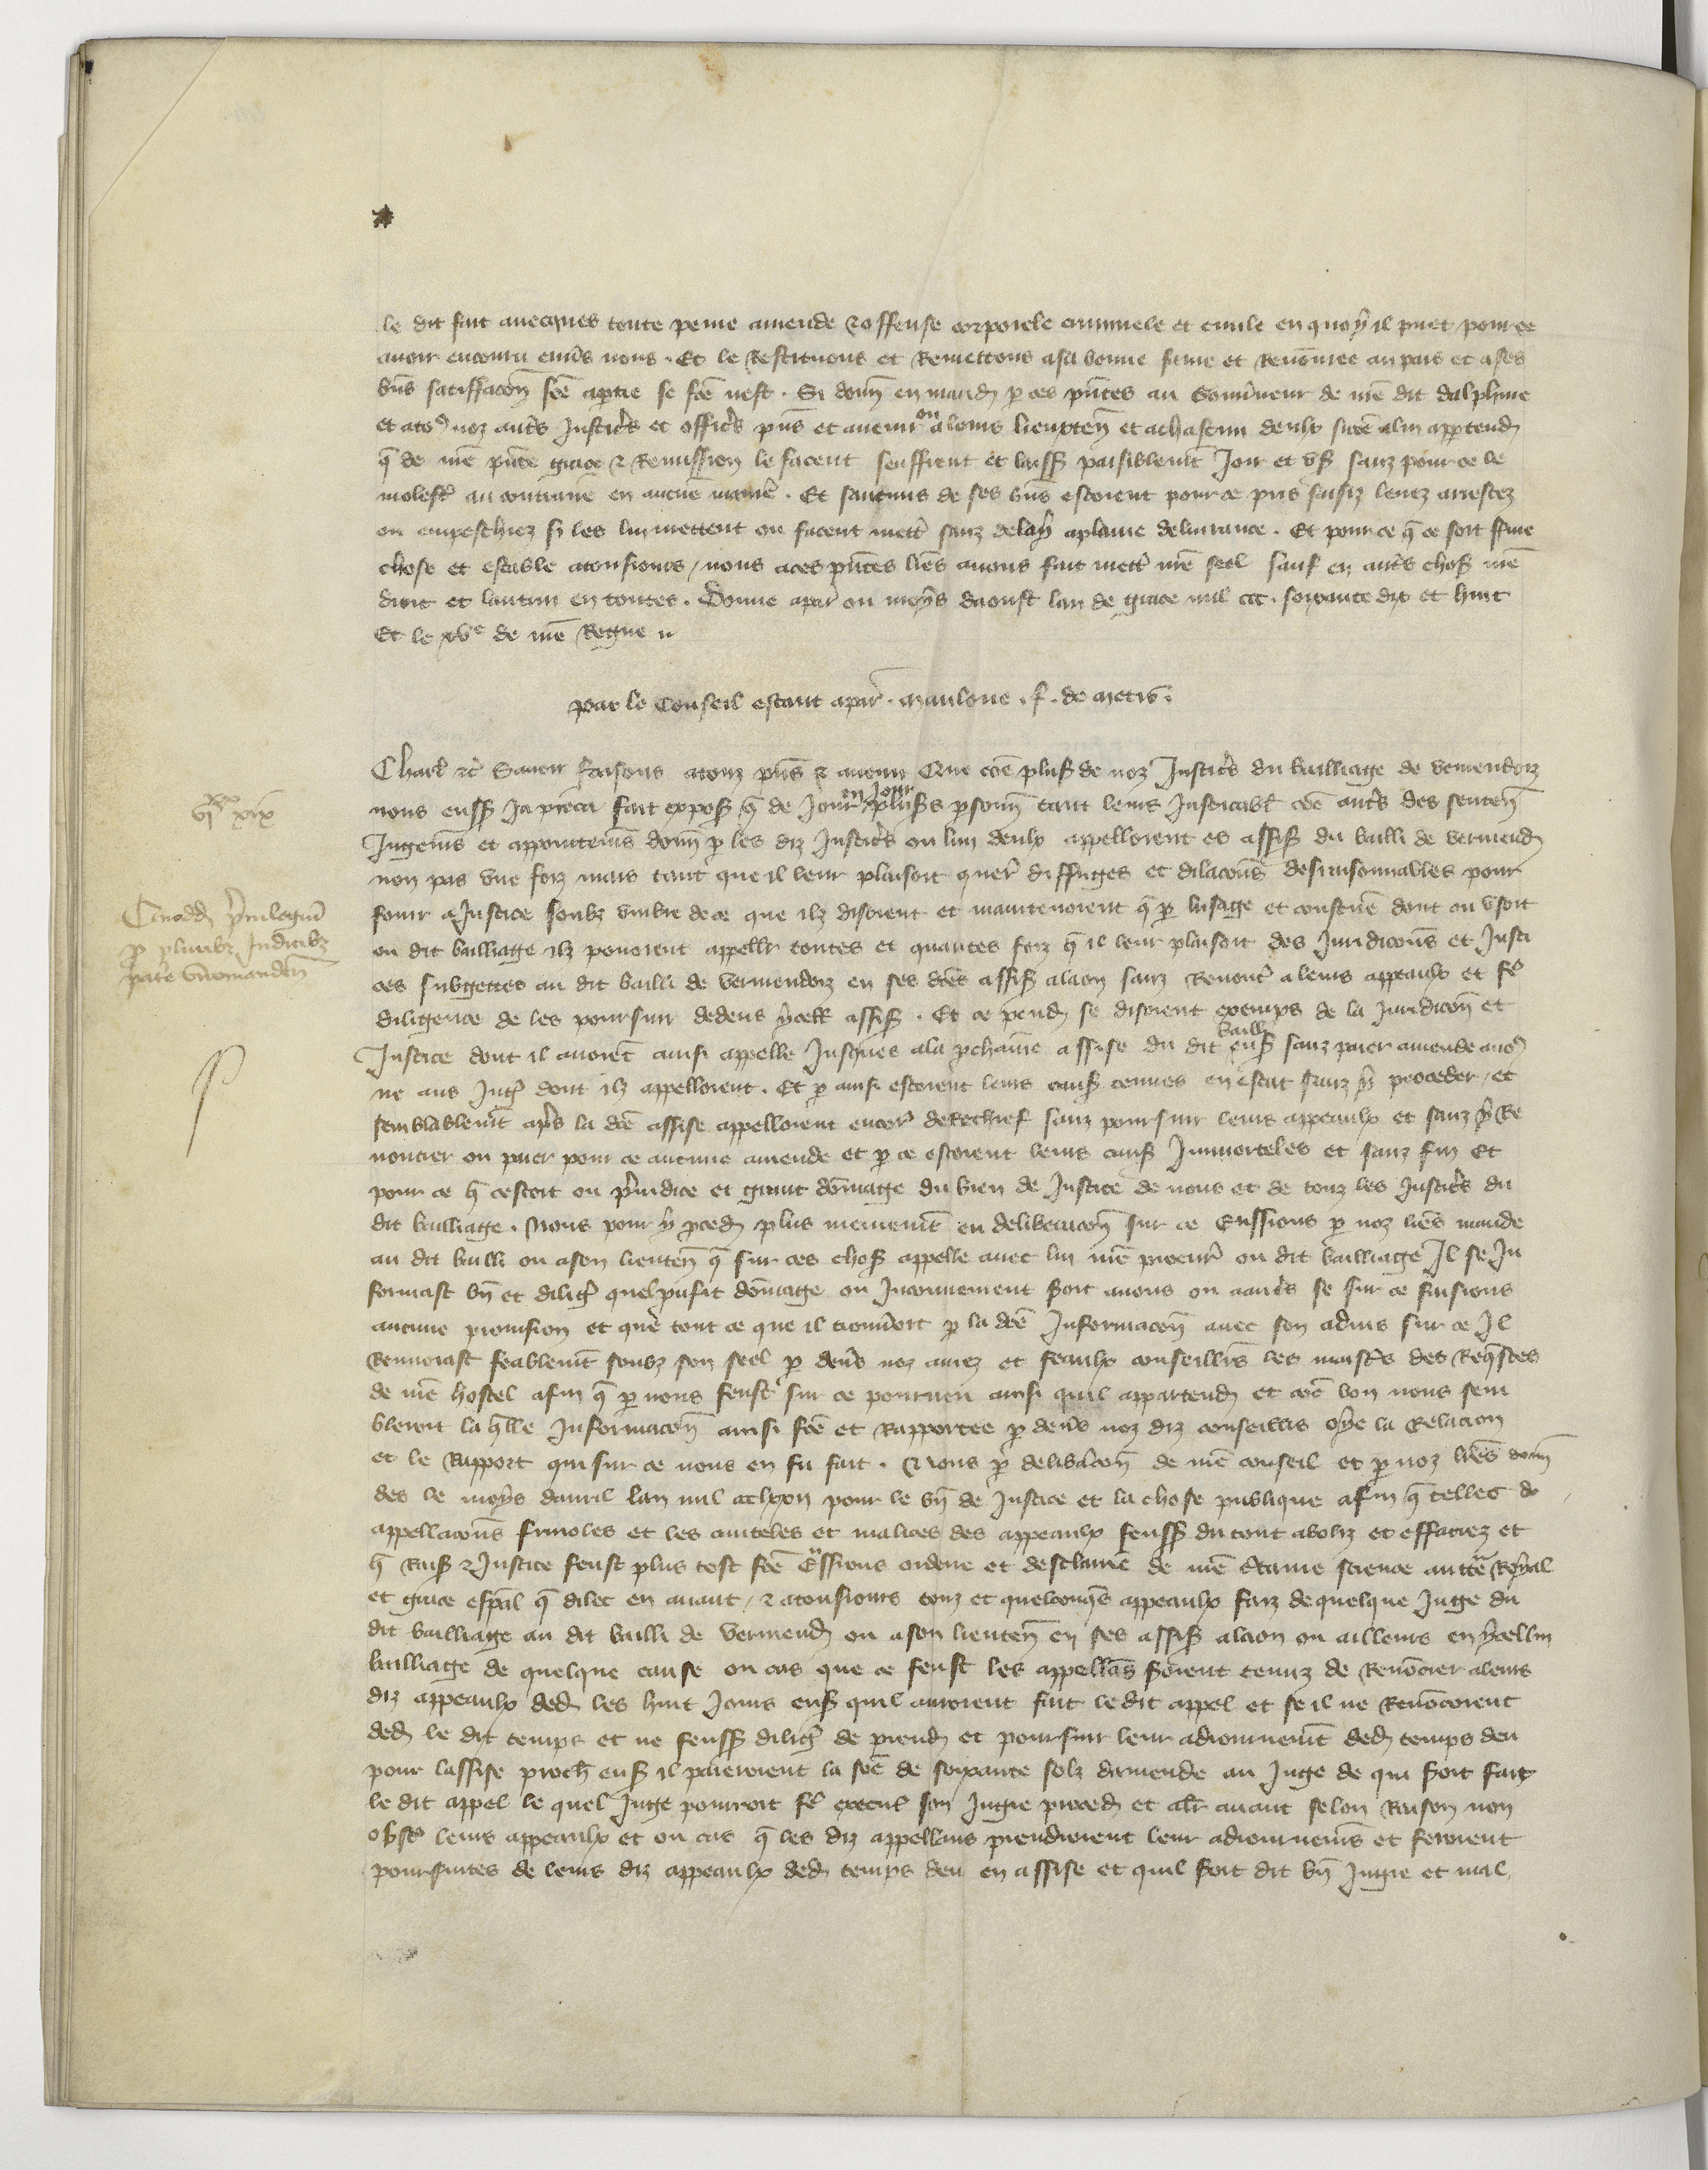 le dit fait avecques toute peine amende & offense corporele criminele et civile en quoy il puet pour ce
avoir encouru envs nous. Et le Restituons et Remettons a sa bonne fame et Renomee au pais et a ses
bns satisfacon fce a ptie se fce nest. Si donn en mand p ces pntes au Gouvneur de nre dit dalphine
et a toz noz autrs Justicrs et officrs pns et avenir ou a leurs lieuxten et a chascun deulx sicoe a lui apptend
q de nre pnte grace & Remission le facent seuffrent et laiss paisiblemt Joir et us sanz pour ce le
molestr au contraire en aucune maniere. Et saucuns de ses bns estoient pour ce pris saisiz levez arrestez
ou empeschiez si les lui mettent ou facent mettr sanz delay a plaine delivrance. Et pour ce q ce soit ferme
chose et estable a tousiours / nous a ces pntes lres avons fait mettr nre seel sauf en autrs chos nre
droit et lautrui en toutes. Donne a par ou moys daoust lan de grace mil ccc. soixante dix et huit
Et le xve de nre Regne
par le Conseil estant a par. Mauloue. f. de metis.
Charl etc Savoir faisons a touz pns & avenir Que coe plus de noz Justicrs du bailliage de vermendoiz
nous euss Ja pieca fait expos q de Jour en Jour pluss psonn tant leurs Justicabl coe autrs des senten
Jugemns et appointemns donn p les diz Justicrs ou lun deulx appelloient es assis du bailli de vermend
non pas une foiz mais tant que il leur plaisoit querr diffuges et dilacons desraisonnables pour
fouir a Justice soubz umbre de ce que ilz disoient et maintenoient q p lusage et coustume dont on usoit
ou dit bailliage ilz povoient appeller toutes et quantes foiz q il leur plaisoit des Juridicons et Justi
ces subgettes au dit bailli de vermendoiz en ses dces assis a laon sanz Renoncr a leurs appeaulx et fe
diligence de les poursuir dedens ycell assis. Et ce pend se disoient exemps de la Juridicon et
Justice dont il avoient ainsi appelle Jusques a la pchaine assise du dit bailli ens sanz paier amende a noz
ne aus Jugs dont ilz appelloient. Et p ainsi estoient leurs caus tenues en estat sanz y proceder / et
semblablemt aps la dce assise appelloient encor de Rechief sanz poursuir leurs appeaulx et sanz y Re
noncier ou paier pour ce aucune amende et p ce estoient leurs caus Immorteles et sanz fin Et
pour ce q cestoit ou pjudice et grant dommage du bien de Justice de nous et de touz les Justicrs du
dit bailliage. Nous pour y pced plus meuremt en deliberacon sur ce Eussions p noz lres mande
au dit bailli ou a son lieuten q sur ces chos appelle avec lui nre procurr ou dit bailliage Il se In
formast bn et diligr quel pufit dommage ou Inconvenient soit a nous ou a autrs se sur ce faisions
aucune provision et que tout ce que il trouvoit p la dce Informacon avec son advis sur ce Il
Renvoiast feablemt soubz son seel p devs noz amez et feaulx conseillrs les maistrs des Requstes
de nre hostel afin q p nous feust sur ce pourveu ainsi quil appartend et coe bon nous sem
bleroit la qlle Informacon ainsi fce et Rapportee p devs noz diz conseillrs oye la Relacion
et le Rapport qui sur ce nous en fu fait. Nous p delibacon de nre conseil et p noz lres donn
des le moys davril lan mil pour le bn de Justice et la chose publique afin q telles
appellacons frivoles et les cauteles et malices des appeaulx feuss du tout aboliz et effaciez et
q Rais & Justice feust plus tost fce Eussions ordene et desclaire de nre ctaine science auttre Royal
et grace espal q dilec en avant / & a tousiours touz et quelconqs appeaulx faiz de quelque Juge du
dit bailliage au dit bailli de vermend ou a son lieuten en ses assis a laon ou ailleurs en ycellui
bailliage de quelque cause ou cas que ce feust les appellans soient tenuz de Renoncier a leurs
diz appeaulx ded les huit Jours ens quil auroient fait le dit appel et se il ne Renoncoient
ded le dit temps et ne feuss diligr de prend et poursuir leur adiournemt ded temps deu
pour lassise proch ens il paieroient la soe de soixante solz damende au Juge de qui soit fait
le dit appel le quel Juge pourroit fe execut son Jugie proced et alr avant selon Raison non
obstr leurs appeaulx et ou cas q les diz appellans prendroient leur adiournemns et feroient
poursuites de leurs diz appeaulx ded temps deu en assise et quil soit dit bn Jugie et mal
xix
Quodd pvilegiu
p pluribz Judicibz